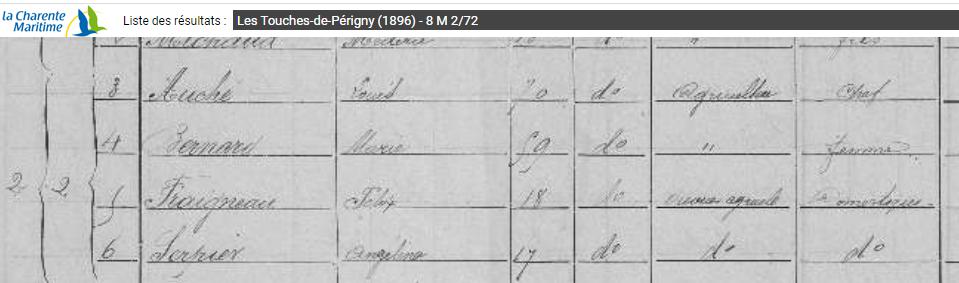 la Charente
Maritime
Liste des résultats : Les Touches-de-Périgny (1896) - 8 M 2/72
Michaud Médéric " fils
3 Auché Louis 70 do agriculteur Chef
4 Bernard Marie 59 do " femme
2 2 5 Fraigneau Félix 18 do ouvrier agricole Domestique
6 Angélina 17 do do do